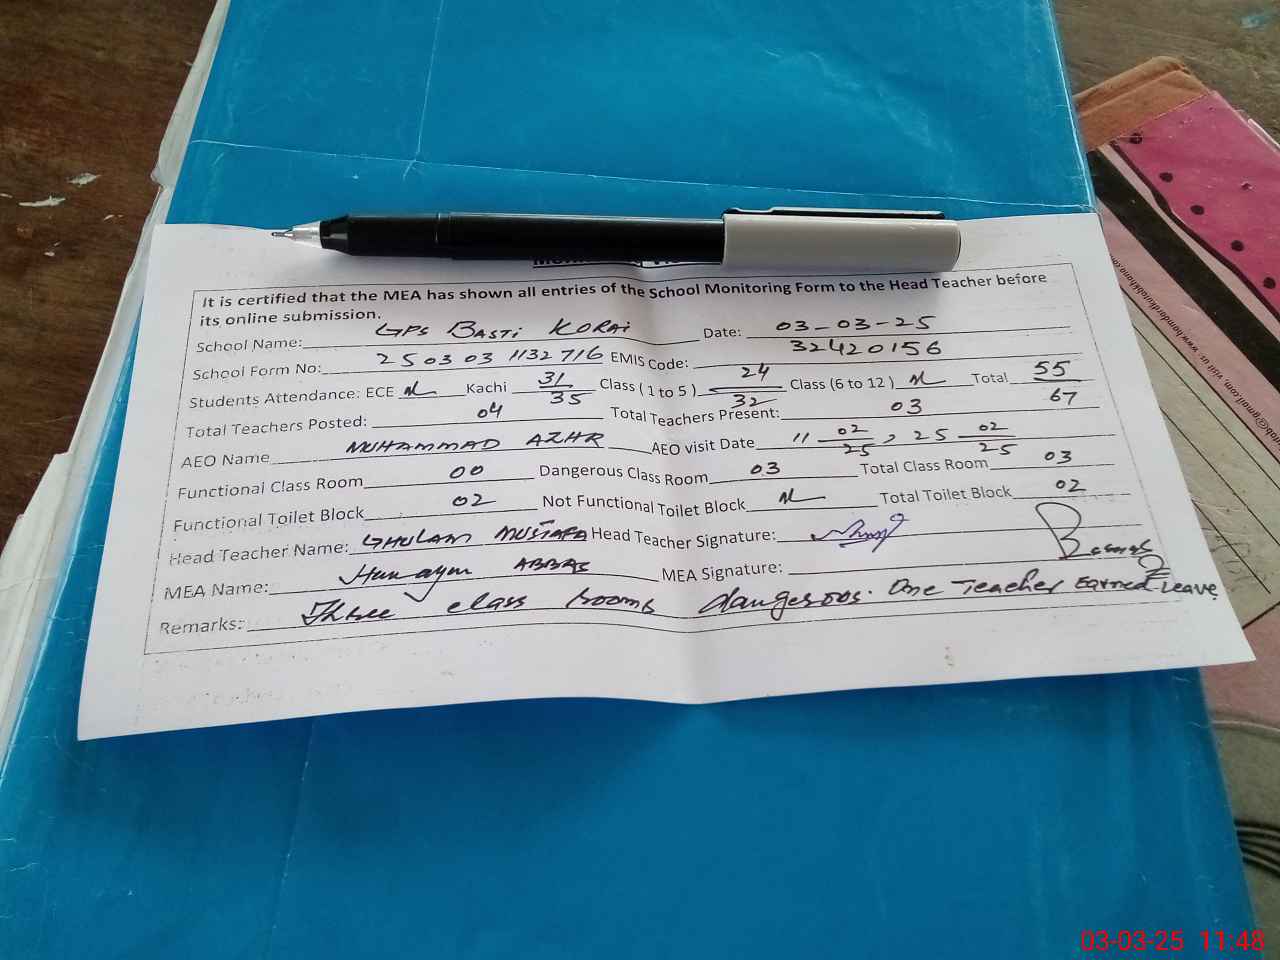 It is certified that the MEA has shown all entries of the School Monitoring Form to the Head Teacher before
its online submission.
School Name: GPS BASTi KORAi Date: 03-03-25
School Form No: 250303 1132716 EMIS Code: 32420156
Students Attendance: ECE NL Kachi 31/35 Class ( 1 to 5 ) 24/32 Class (6 to 12 ) NL Total 55/67
Total Teachers Posted: 04 Total Teachers Present: 03
AEO Name MUHAMMAD AZHR AEO visit Date 11 02/25 , 25 02/25
Functional Class Room 00 Dangerous Class Room 03 Total Class Room 03
Functional Toilet Block 02 Not Functional Toilet Block NL Total Toilet Block 02
Head Teacher Name: GHULAM MUSTAFA Head Teacher Signature:
MEA Name: Humayun ABBAS MEA Signature:
Remarks: Three class rooms dangerous. One Teacher Earned Leave
www.hamdardkutabkhana.com
03-03-25 11:48